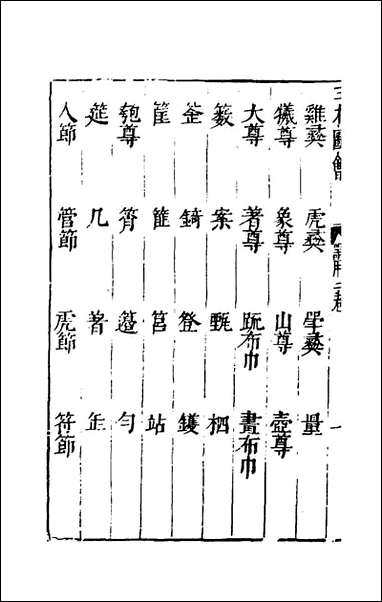 三才圖會 器用二卷 一
雞彝 虎彝 斝彝 量
犧尊 象尊 山尊 壺尊
大尊 著尊 疏布巾 畫布巾
籔 案 甒 柶
釜 錡 登 鑊
筐 篚 筥 站
匏尊 筲 籩 勺
筵 几 蓍 缶
人節 管節 虎節 符節